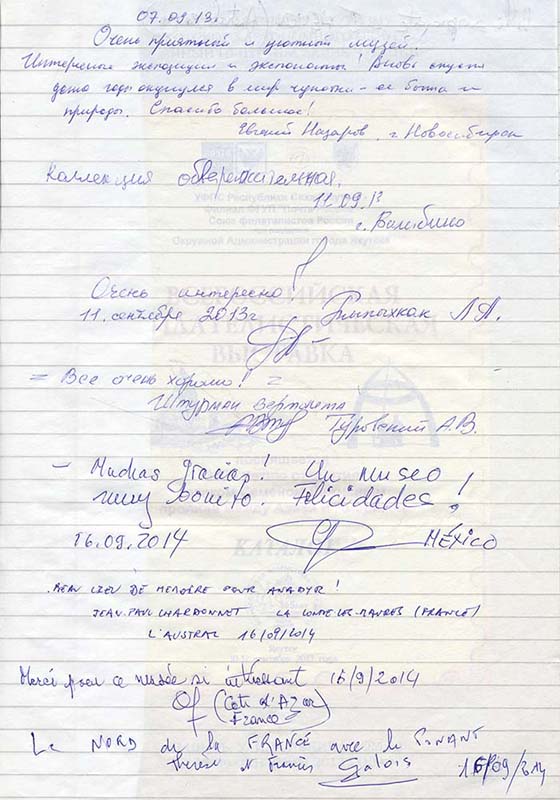 07.09.13г.
Очень приятный и уютный музей!
Интересные экспозиции и экспонаты! Вновь спустя
долго годы окунулся в мир чукотки - её быта и
природы. Спасибо большое!
Евгений Назаров, г. Новосибирск
Коллекция обворожительная.
11.09.13
г.
Очень интересно!
11. сентября 2013г Л.А.
= Все очень хорошо! =
Штурман вертолета
Туровский А.В.
- Muchas gracias! Un museo
muy bonito. Felicidades!
16.09.2014 MÉXICO
BEAU LIEU DE MEMOIRE POUR ANADYR!
JEAN-PAUL CHARDONNET (FRANCE)
L'AUSTRAL 16/09/2014
Merci pour ce musée si intéressant 16/9/2014
(Côte d'Azur
France)
Le NORD de la FRANCE avec le PONANT
Therese Francis Galois 16/09/2014